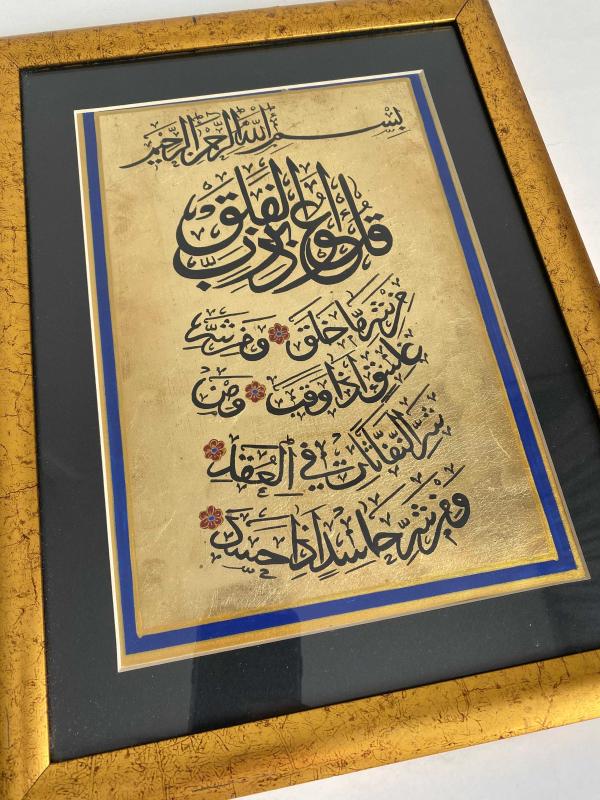 بسم الله الرحمن الرحيم
قل أعوذ برب الفلق
من شر ما خلق ومن شر
غاسق إذا وقب ومن
شر النفاثات في العقد
ومن شر حاسد إذا حسد